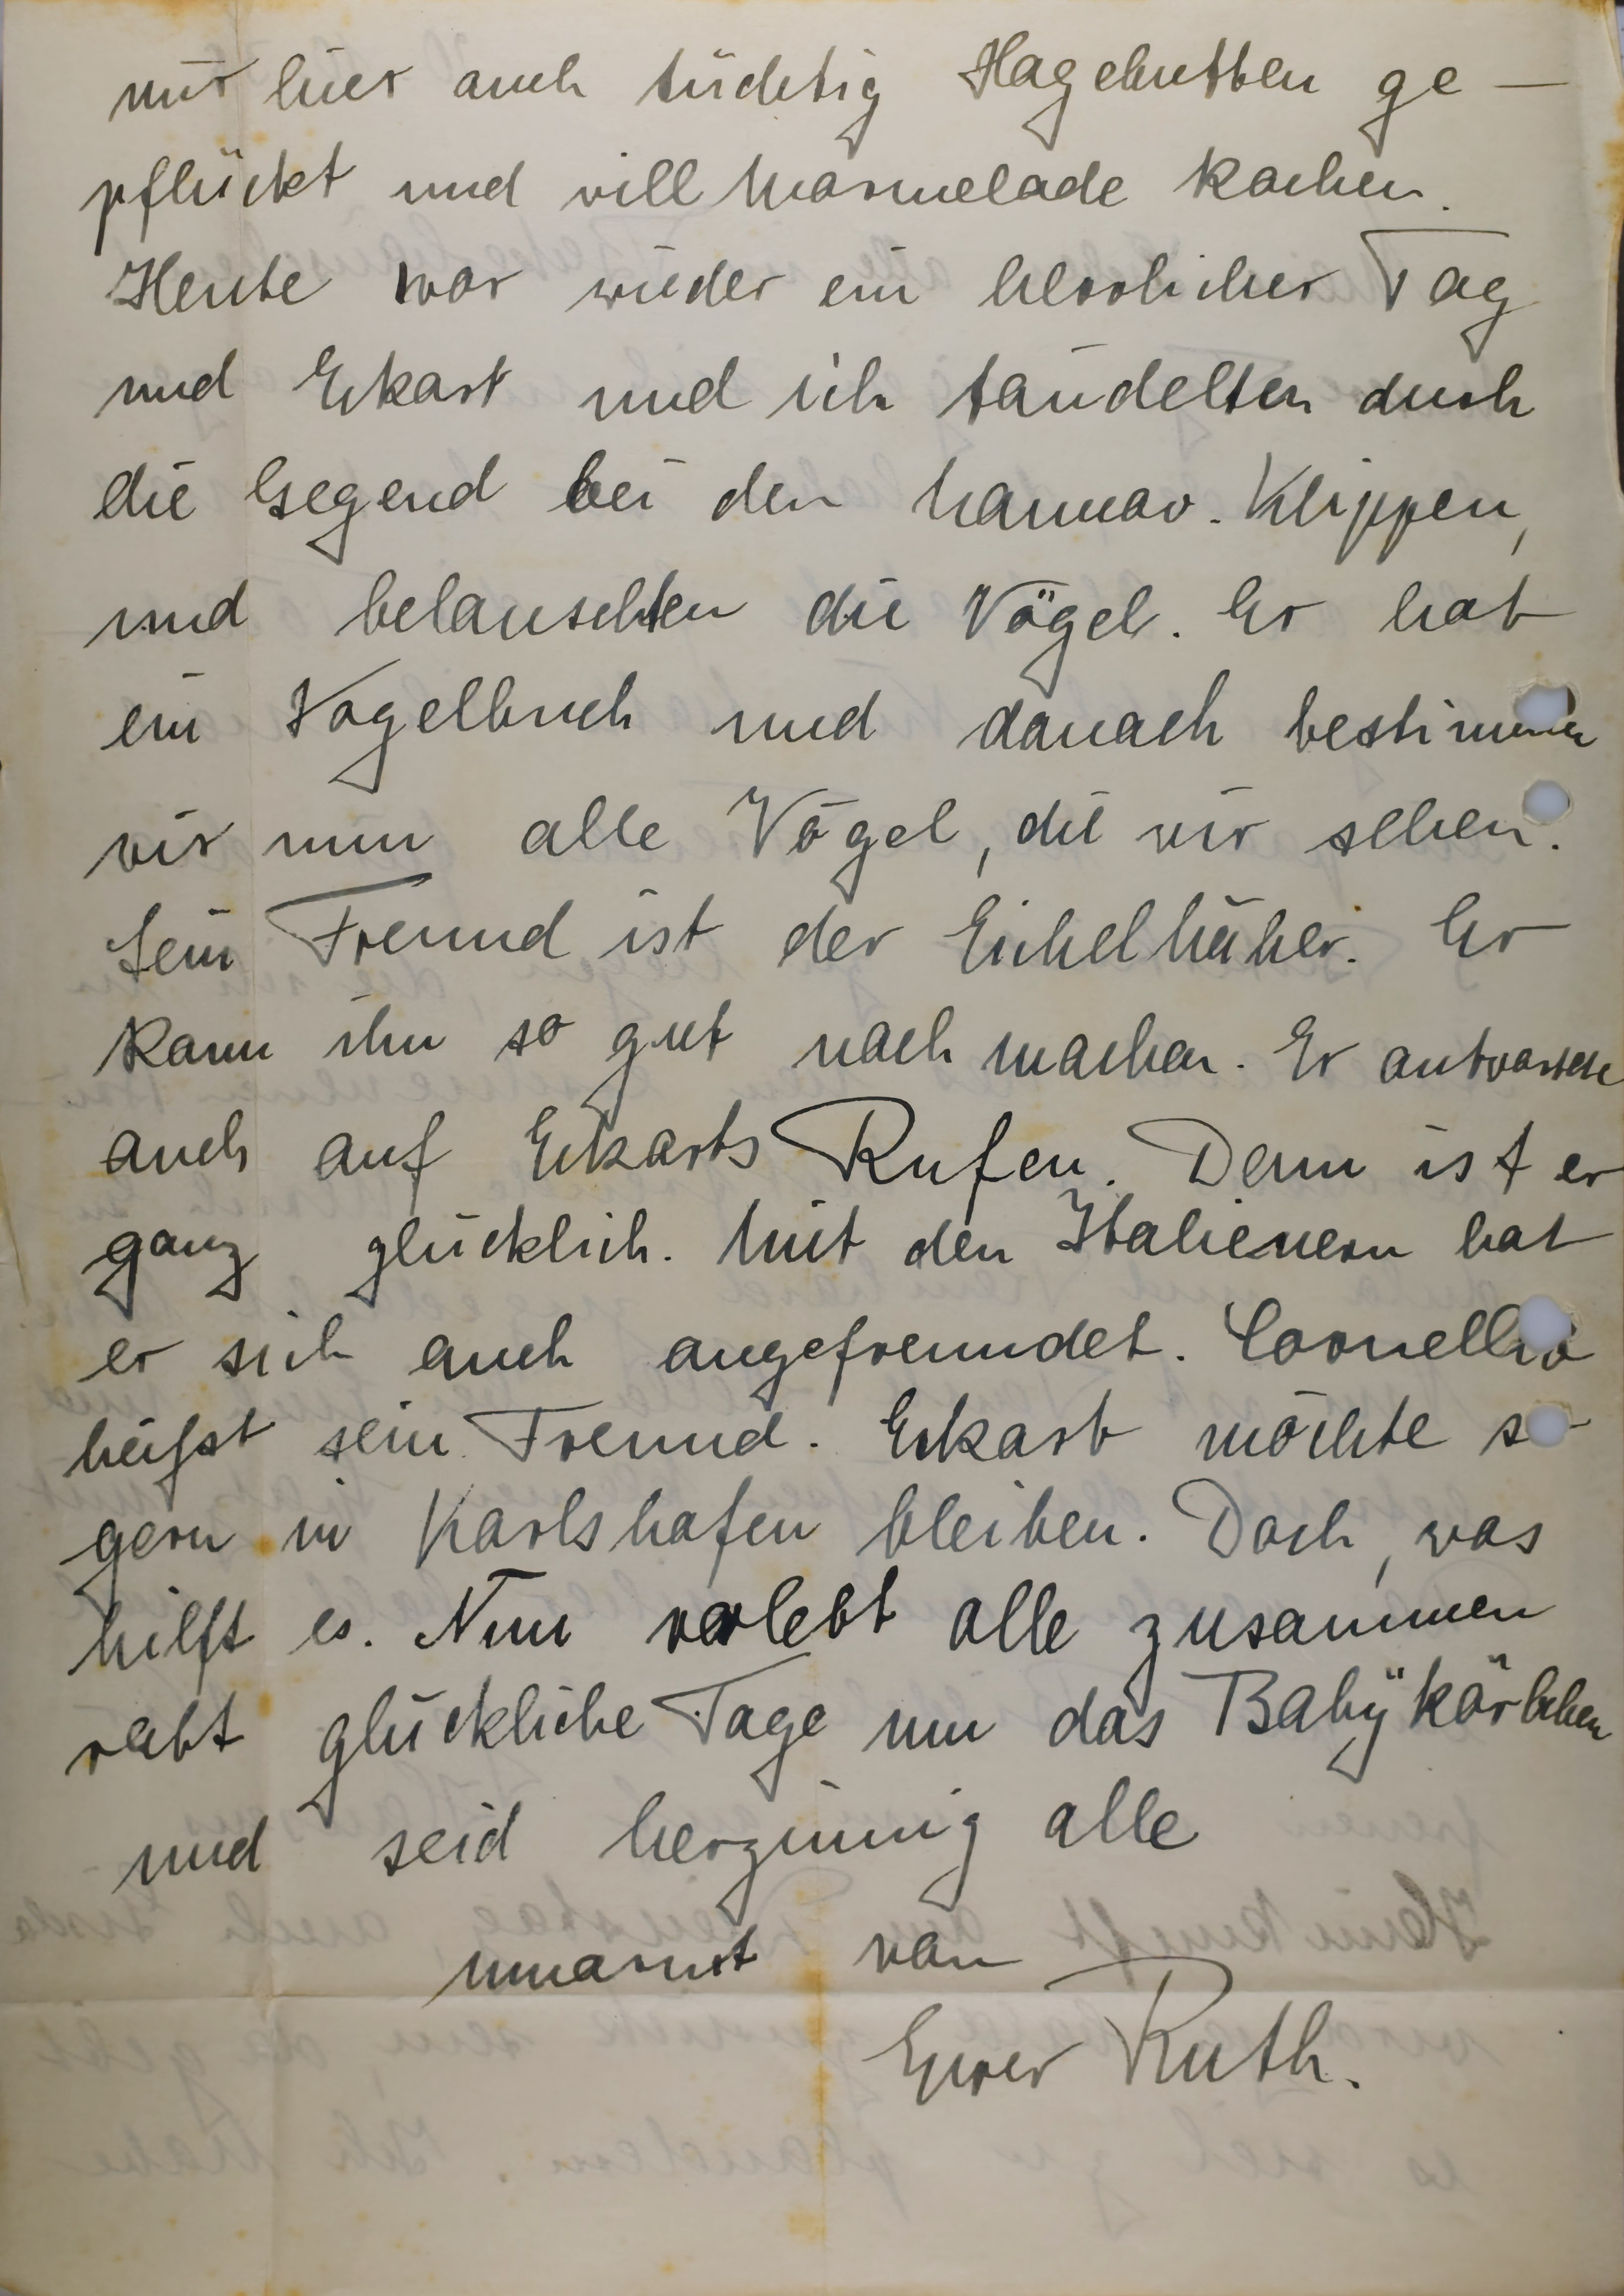 mir hier auch tüchtig Hagebutten ge-
pflückt und will Marmelade kochen.
Heute war wieder ein herrlicher Tag
und Eckart und ich tändelten durch
die Gegend bei den hannov. Klippen,
und belauschten die Vögel. Er hat
ein Vogelbuch und danach bestimmen
wir nun alle Vögel, die wir sehen.
Sein Freund ist der Eichelhäher. Er
kann ihn so gut nach machen. Er antwortete
auch auf Eckarts Rufen. Denn ist er
ganz glücklich. Mit den Italienern hat
er sich auch angefreundet. Cornellio
heißt sein Freund. Eckart möchte so
gern in Karlshafen bleiben. Doch, was
hilft es. Nun verlebt alle zusammen
recht glückliche Tage um das Babykörbchen
und seid herzinnig alle
umarmt von
Eurer Ruth.